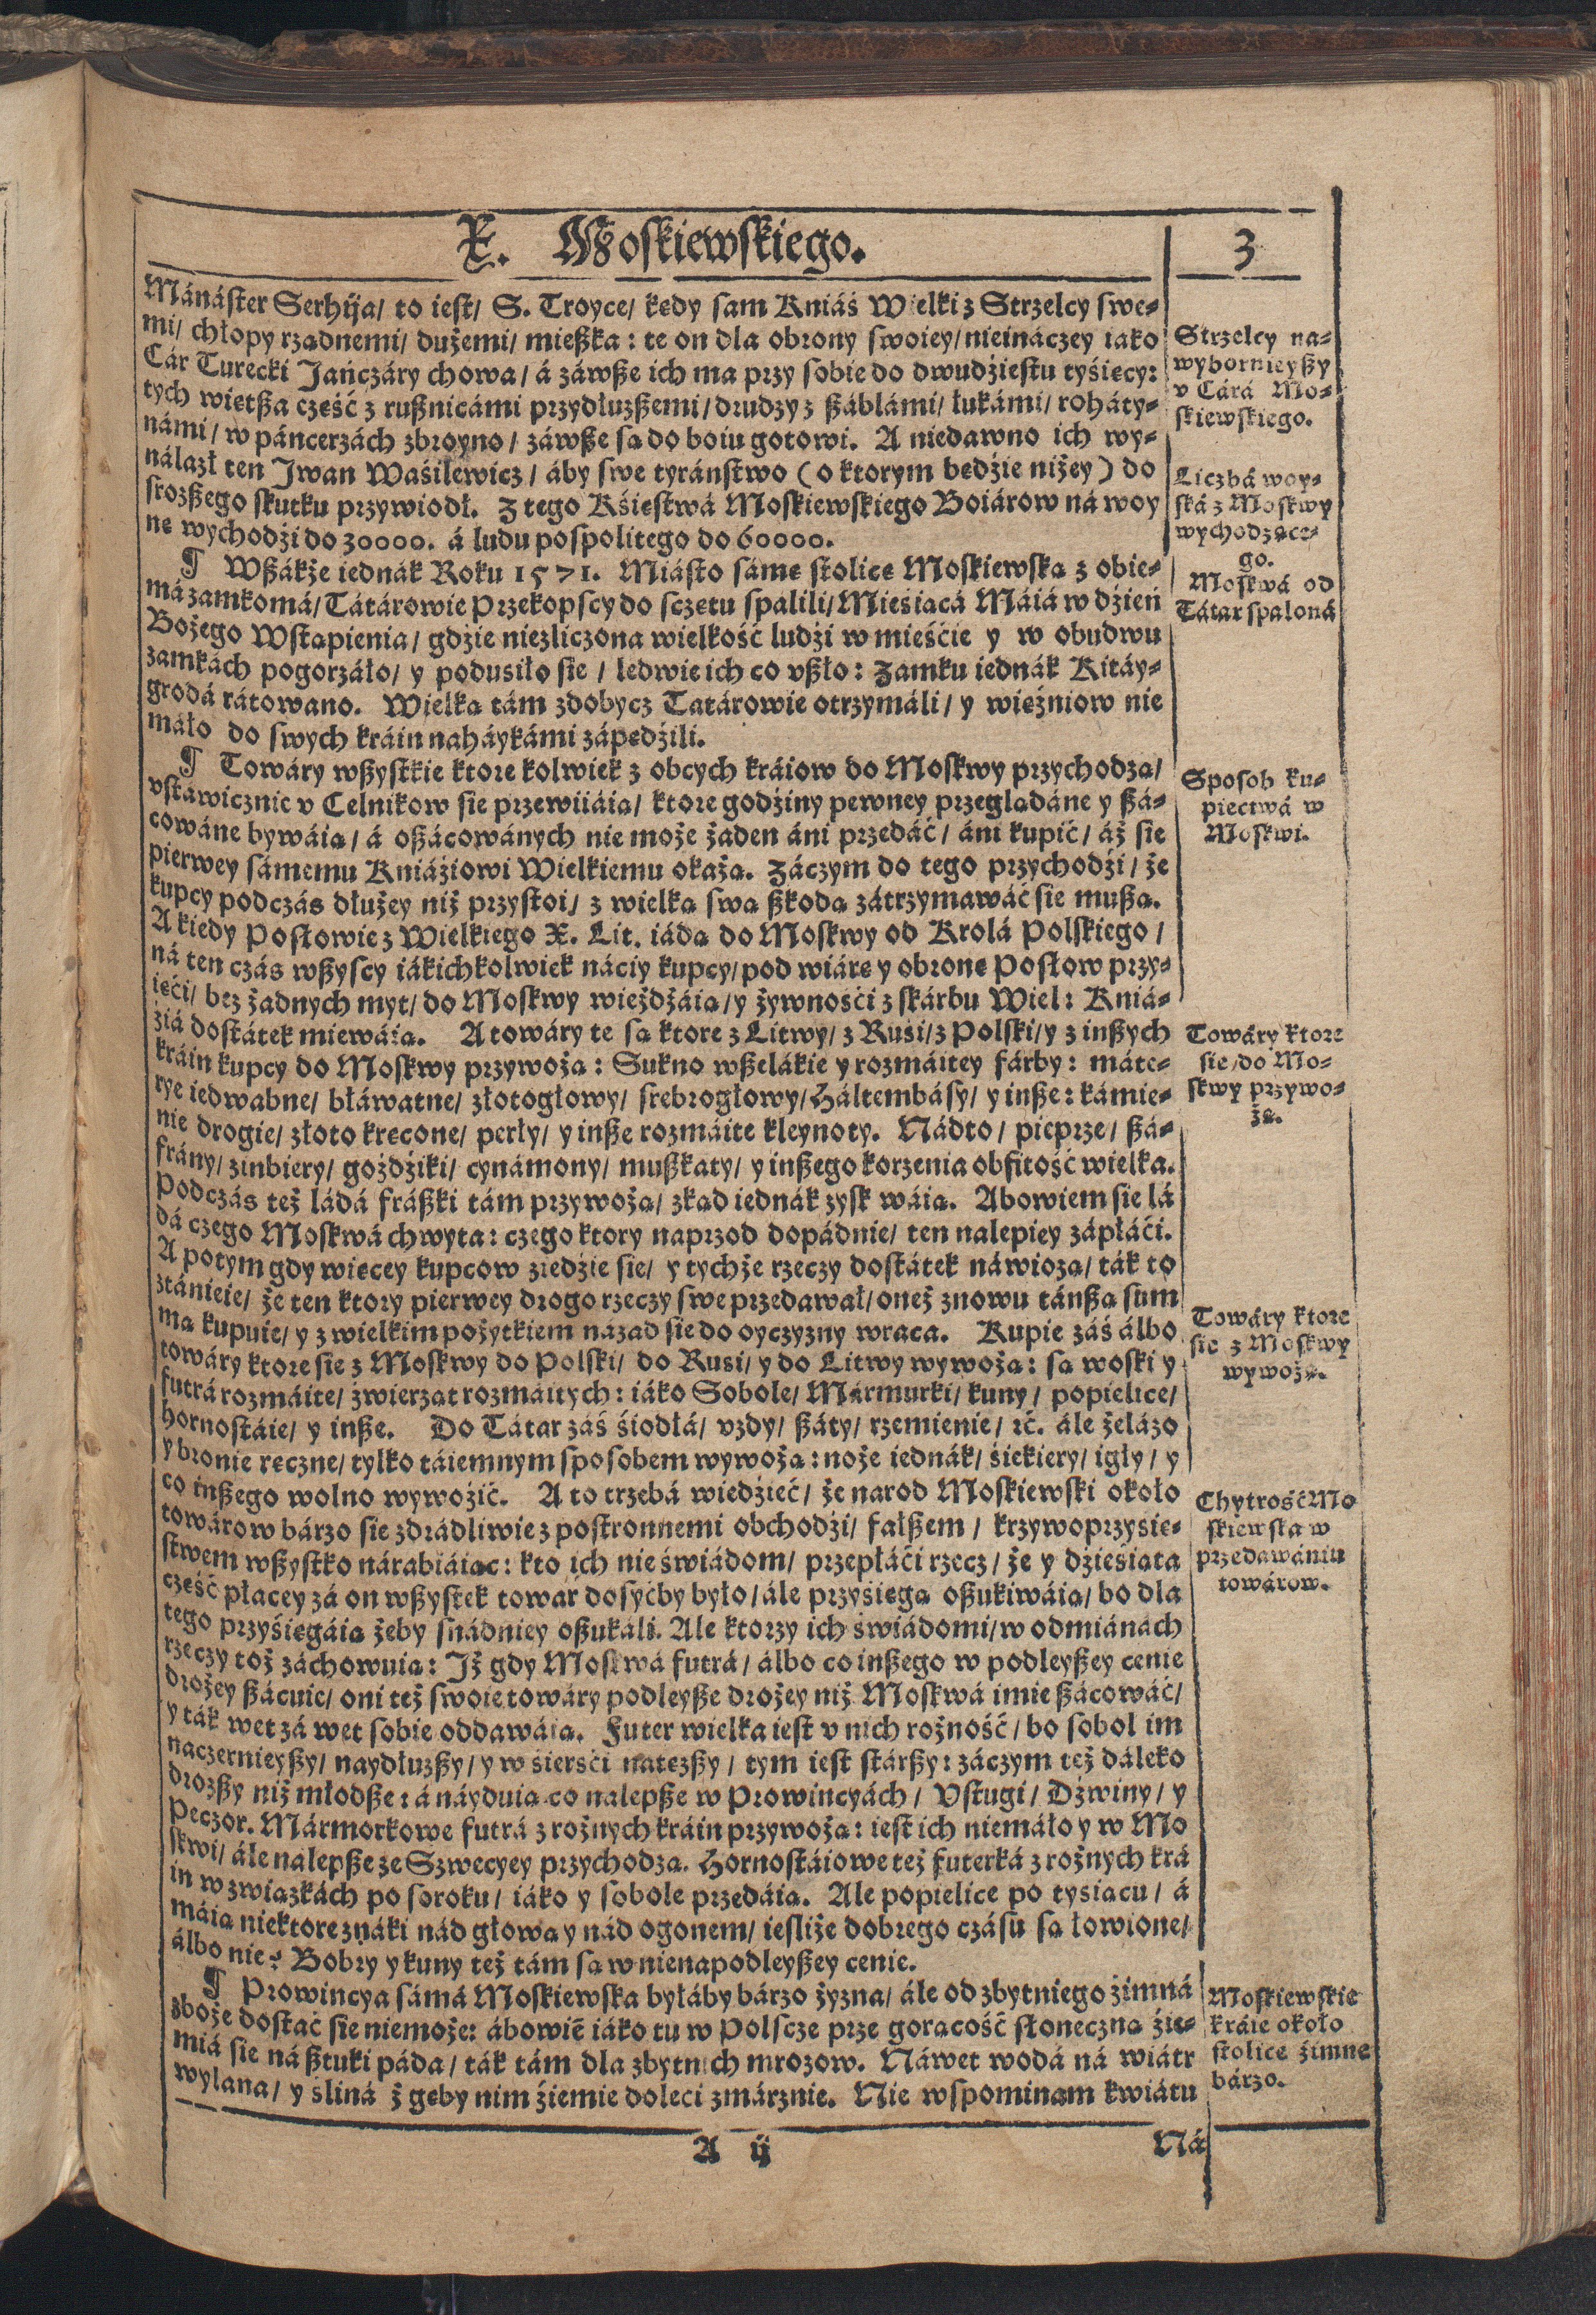 X. Moskiewskiego.
3
Mánáster Serhija/ to iest/ S. Troyce/ kędy sam Kniáź Wielki z Strzelcy swe-
mi/ chłopy rządnemi/ dużemi/ mießka: te on dla obrony swoiey/ nieináczey iako
Cár Turecki Jáńczáry chowa/ á záwße ich ma przy sobie do dwudźiestu tyśięcy:
tych więtßa część z rußnicámi przydłużßemi/ drudzy z ßáblámi/ łukámi/ roháty-
námi/ w páncerzách zbroyno/ záwße są do boiu gotowi. A niedawno ich wy-
nálazł ten Jwan Waśilewicz/ áby swe tyráństwo (o ktorym będźie niżey) do
srozßego skutku przywiodł. Z tego Kśięstwá Moskiewskiego Boiárow ná woy
nę wychodźi do 30000. á ludu pospolitego do 60000.
¶ Wßákże iednák Roku 1571. Miásto sáme stolice Moskiewska z obie-
má zamkomá/ Tátárowie Przekopscy do sczętu spalili/ Mieśiącá Máiá w dźień
Bożego Wstąpienia/ gdźie niezliczona wielkość ludźi w mieśćie y w obudwu
zamkách pogorzáło/ y podusiło się/ ledwie ich co vßło: Zamku iednák Kitáy-
grodá rátowano. Wielką tám zdobycz Tatárowie otrzymáli/ y więźniow nie
máło do swych kráin naháykámi zápędźili.
¶ Towáry wßystkie ktore kolwiek z obcych kráiow do Moskwy przychodzą/
vstáwicznie v Celnikow się przewiiáią/ ktore godźiny pewney przeglądáne y ßá-
cowáne bywáią/ á oßácowánych nie może żaden áni przedáć/ áni kupić/ áż się
pierwey sámemu Kniáźiowi Wielkiemu okażą. Záczym do tego przychodźi/ że
kupcy podczás dłużey niż przystoi/ z wielką swą ßkodą zátrzymawáć się mußą.
A kiedy Posłowie z Wielkiego X. Lit. iádą do Moskwy od Krolá Polskiego/
ná ten czás wßyscy iákichkolwiek náciy kupcy/ pod wiárę y obronę Posłow przy-
ięći/ bez żadnych myt/ do Moskwy wieżdżáią/ y żywnośći z skárbu Wiel: Kniá-
źiá dostátek miewáią. A towáry te są ktore z Litwy/ z Rusi/ z Polski/ y z inßych
kráin kupcy do Moskwy przywożą: Sukno wßelákie y rozmáitey fárby: máte-
rye iedwabne/ błáwatne/ złotogłowy/ srebrogłowy/ Háltembásy/ y inße: kámie-
nie drogie/ złoto kręcone/ perły/ y inße rozmáite kleynoty. Nádto/ pieprze/ ßá-
frány/ zinbiery/ goźdźiki/ cynámony/ mußkaty/ y inßego korzenia obfitość wielka.
Podczás też ládá fráßki tám przywożą/ zkąd iednák zysk wáią. Abowiem się lá
dá czego Moskwá chwyta: czego ktory naprzod dopádnie/ ten nalepiey zápłáći.
A potym gdy więcey kupcow ziedźie się/ y tychże rzeczy dostátek náwiozą/ ták to
ztánieie/ że ten ktory pierwey drogo rzeczy swe przedawał/ oneż znowu tánßą sum
mą kupuie/ y z wielkim pożytkiem názad się do oyczyzny wraca. Kupie záś álbo
towáry ktore się z Moskwy do Polski/ do Rusi/ y do Litwy wywożą: są woski y
futrá rozmáite/ źwierząt rozmáitych: iáko Sobole/ Mármurki/ kuny/ popielice/
hornostáie/ y inße. Do Tátar záś śiodłá/ vzdy/ ßáty/ rzemienie/ ꝛć. ále żelázo
y bronie ręczne/ tylko táiemnym sposobem wywożą: noże iednák/ śiekiery/ igły/ y
co inßego wolno wywoźić. A to trzebá wiedźieć/ że narod Moskiewski około
towárow bárzo się zdrádliwie z postronnemi obchodźi/ fałßem/ krzywoprzysię-
stwem wßystko nárabiáiąc: kto ich nieświádom/ przepłáći rzecz/ że y dźiesiąta
część płacey zá on wßystek towar dosyćby było/ ále przyśięgą oßukiwáią/ bo dla
tego przyśięgáią żeby snádniey oßukáli. Ale ktorzy ich świádomi/ w odmiánách
rzeczy toż záchowuią: Jż gdy Moskwá futrá/ álbo co inßego w podleyßey cenie
drożey ßácuie/ oni też swoie towáry podleyße drożey niż Moskwá imie ßácowáć/
y ták wet zá wet sobie oddawáią. Futer wielka iest v nich rożność/ bo sobol im
naczernieyßy/ naydłużßy/ y w śierśći natęzßy/ tym iest stárßy: záczym też dáleko
drozßy niż młodße: á náyduią co nalepße w Prowincyách/ Vstugi/ Dźwiny/ y
Peczor. Mármorkowe futrá z rożnych kráin przywożą: iest ich niemáło y w Mo
skwi/ ále nalepße ze Szwecyey przychodzą. Hornostáiowe też futerká z rożnych krá
in w związkách po soroku/ iáko y sobole przedáią. Ale popielice po tysiącu/ á
máią niektore znáki nád głową y nád ogonem/ iesliże dobrego czásu są łowione/
álbo nie: Bobry y kuny też tám są w nienapodleyßey cenie.
¶ Prowincya sámá Moskiewska byłáby bárzo żyzna/ ále od zbytniego źimná
zboże dostáć się niemoże: ábowiē iáko tu w Polscze prze gorącość słoneczną źie-
miá się ná ßtuki páda/ ták tám dla zbytnich mrozow. Náwet wodá ná wiátr
wylana/ y śliná z gęby nim źiemie doleci zmárznie. Nie wspominam kwiátu
A ij
Ná
Strzelcy na-
wybornieyßy
v Cárá Mo-
skiewskiego.
Liczbá woy-
ská z Moskwy
wychodzące-
go.
Moskwá od
Tátar spaloná
Sposob ku-
piectwá w
Moskwi.
Towáry ktore
się do Mo-
skwy przywo-
żą.
Towáry ktore
się z Moskwy
wywożą.
Chytrość Mo
skiewska w
przedawániu
towárow.
Moskiewskie
kráie około
stolice źimne
bárzo.